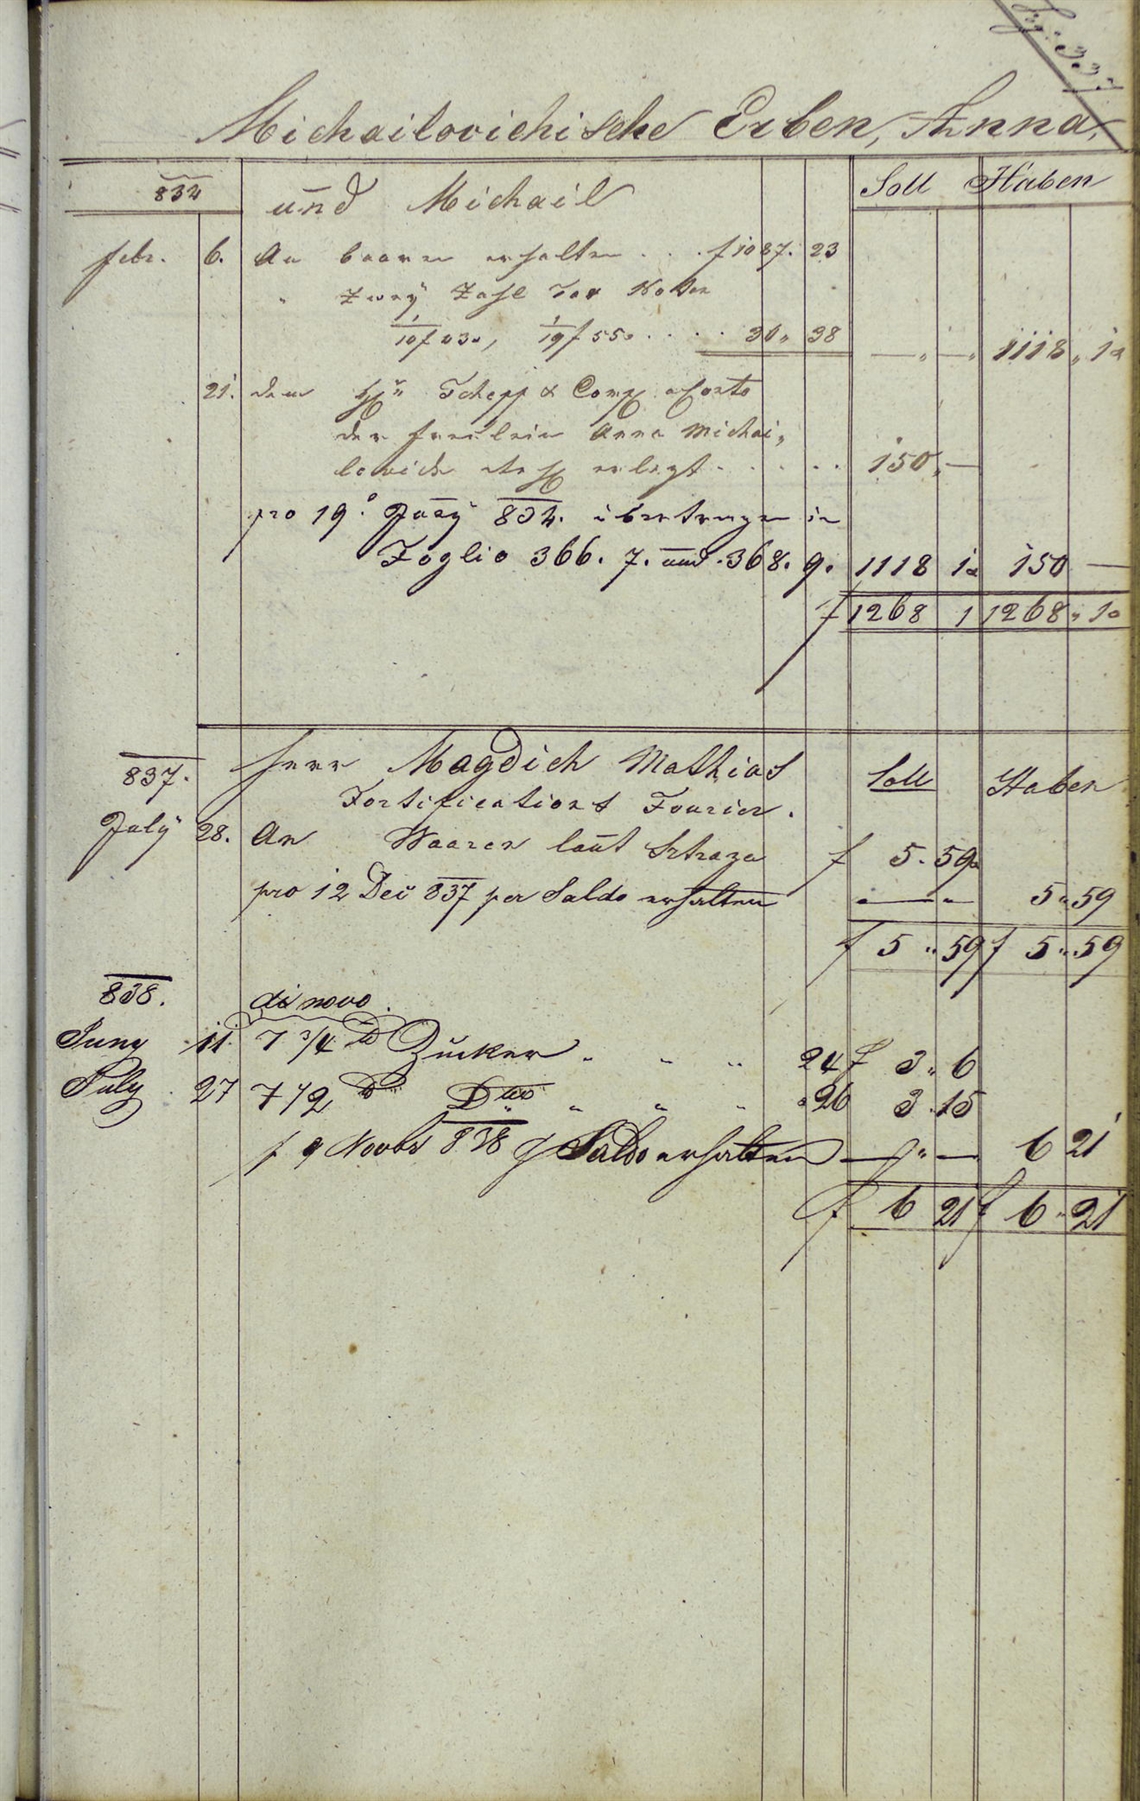 337
Michailovichische Erben, Anna,
834 und Michail Soll Haben
febr. 6. An baaren erhalten . . . f 1087. 23
" Zwey Zahl Noten
1/10 f 030, 1/19 f 550 . . . . 30 " 38 — " — " 1118 " 1
21. dem Hrn Schepp & Comp Conto
der Freulein Anna Michai„
lovich erlegt . . . . . 150 " —
pro 19. Juny 834. übertragen in
Foglio 366. 7. und 368. 9. 1118 1 150 —
f 1268 1 1268 " 1
837. Herr Magdich Mathias Soll Haben
Fortifications Fourier.
July 28. An Waaren laut Strazza f 5 . 59
pro 12 Dec 837 per Saldo erhalten — " 5 " 59
f 5 " 59 f 5 " 59
838. di novo.
Juny 11. 7 3/4 ℔ Zucker " " " 24 f 3 " 6
July . 27 7 1/2 ℔ Dtto " " " 26 3 . 15
p 9 Novbr 838 p Saldo erhalten — " — 6 21
f 6 21 f 6 " 21